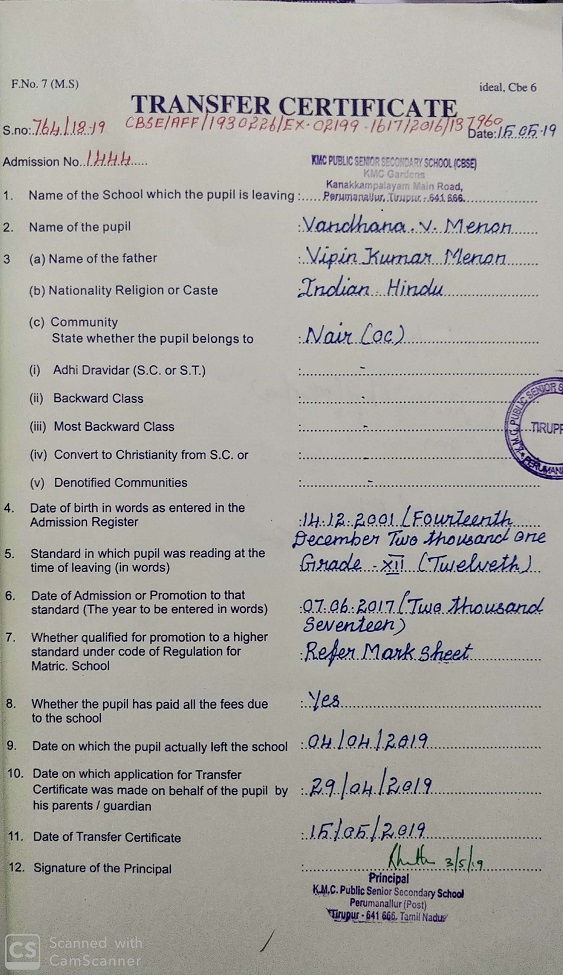 F.No. 7 (M.S)
ideal, Cbe 6
TRANSFER CERTIFICATE
S.no: 764/18-19 CBSE/AFF/1930226/EX-02199-1617/2016/137960 Date: 15.05.19
Admission No. 1444
KMC PUBLIC SENIOR SECONDARY SCHOOL (CBSE)
KMC Gardens
Kanakkampalayam Main Road,
1. Name of the School which the pupil is leaving : Perumanallur, Tirupur - 641 666.
2. Name of the pupil : Vandhana . V. Menon
3 (a) Name of the father : Vipin Kumar Menon
(b) Nationality Religion or Caste Indian - Hindu
(c) Community
State whether the pupil belongs to : Nair (OC)
(i) Adhi Dravidar (S.C. or S.T.) : -
(ii) Backward Class : -
(iii) Most Backward Class : -
(iv) Convert to Christianity from S.C. or : -
(v) Denotified Communities : -
K.M.C. PUBLIC SENIOR S
TIRUPP
PERUMANA
4. Date of birth in words as entered in the
Admission Register : 14.12.2001 / Fourteenth
December Two thousand one
5. Standard in which pupil was reading at the
time of leaving (in words) Grade - XII (Twelveth)
6. Date of Admission or Promotion to that
standard (The year to be entered in words) : 07.06.2017 (Two thousand
Seventeen)
7. Whether qualified for promotion to a higher
standard under code of Regulation for
Matric. School : Refer Mark Sheet
8. Whether the pupil has paid all the fees due
to the school : Yes
9. Date on which the pupil actually left the school : 04/04/2019
10. Date on which application for Transfer
Certificate was made on behalf of the pupil by
his parents / guardian : 29/04/2019
11. Date of Transfer Certificate : 15/05/2019
12. Signature of the Principal : 3/5/19
Principal
K.M.C. Public Senior Secondary School
Perumanallur (Post)
Tirupur - 641 666. Tamil Nadu
CS Scanned with
CamScanner